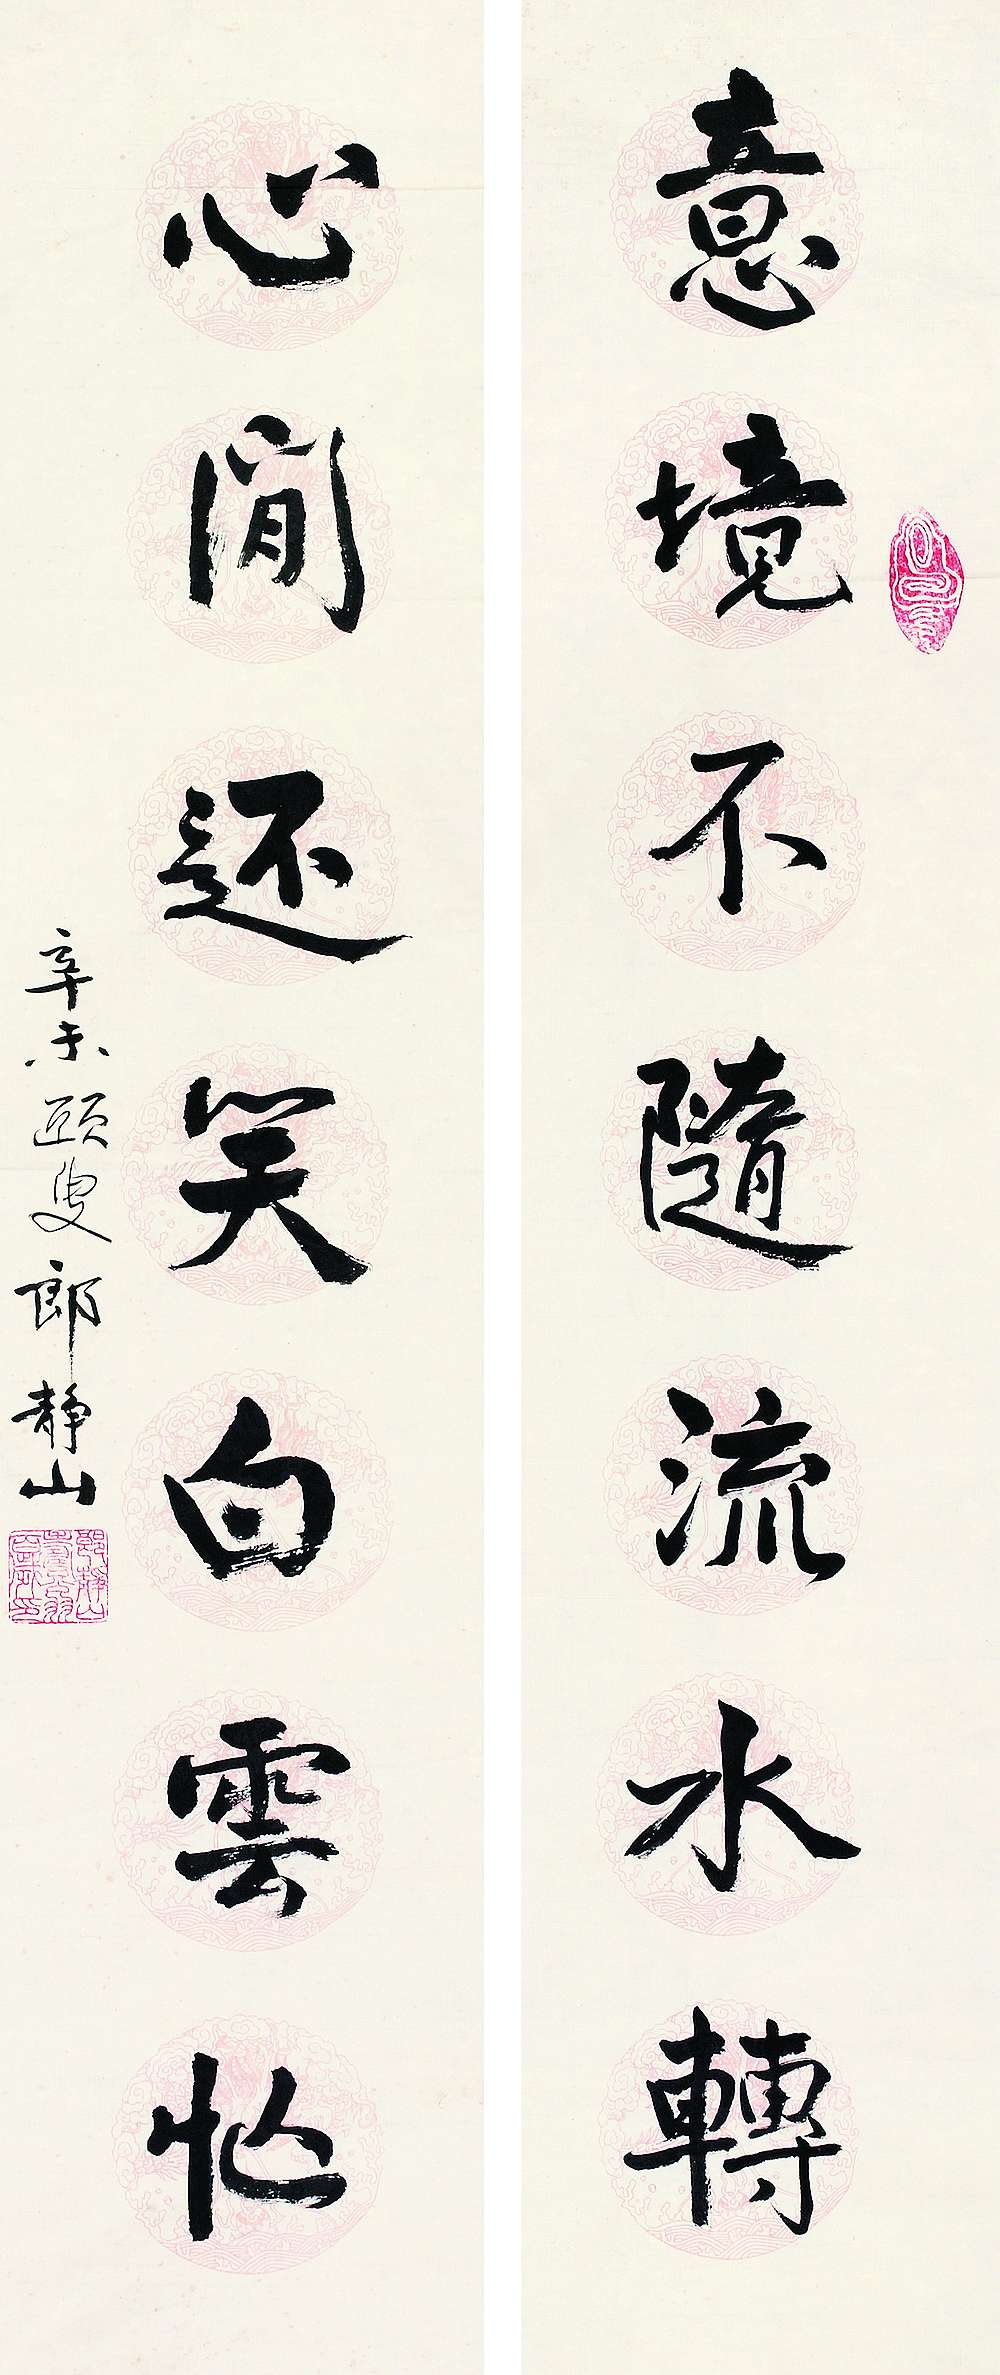 意境不隨流水轉
心閒还笑白雲忙
辛未頤叟郎靜山